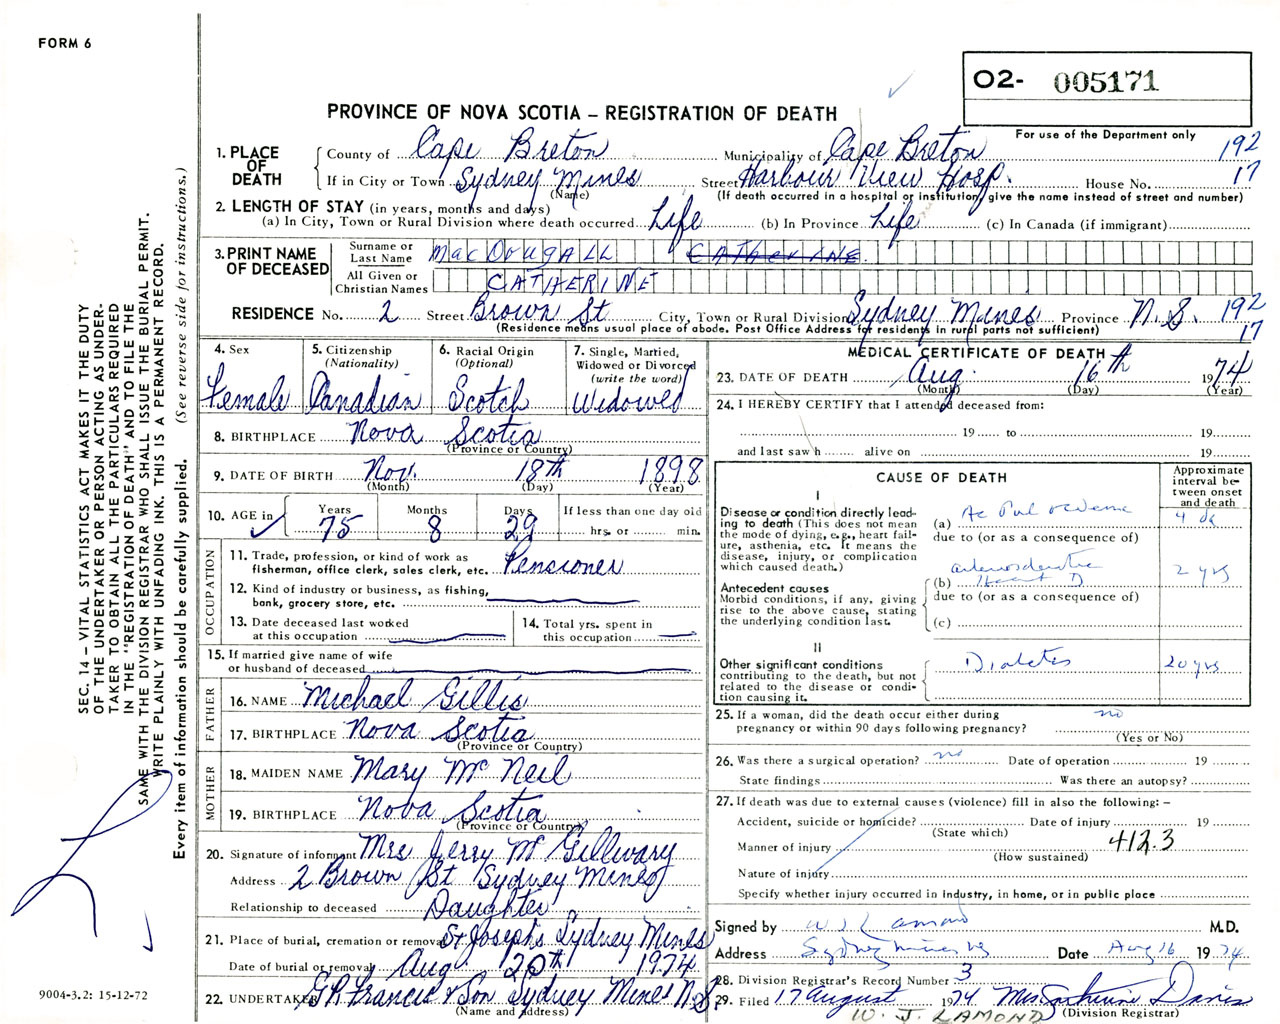 FORM 6
O2- 005171
PROVINCE OF NOVA SCOTIA – REGISTRATION OF DEATH
For use of the Department only
1. PLACE OF DEATH
County of Cape Breton Municipality of Cape Breton 192
If in City or Town Sydney Mines Street Harbour View Hosp. House No. 17
(Name) (If death occurred in a hospital or institution, give the name instead of street and number)
2. LENGTH OF STAY (in years, months and days)
(a) In City, Town or Rural Division where death occurred Life (b) In Province Life (c) In Canada (if immigrant)
3. PRINT NAME OF DECEASED
Surname or Last Name MacDOUGALL CATHERINE
All Given or Christian Names CATHERINE
RESIDENCE No. 2 Street Brown St City, Town or Rural Division Sydney Mines Province N.S. 192
17
(Residence means usual place of abode. Post Office Address for residents in rural parts not sufficient)
4. Sex
Female
5. Citizenship
(Nationality)
Canadian
6. Racial Origin
(Optional)
Scotch
7. Single, Married,
Widowed or Divorced
(write the word)
Widowed
8. BIRTHPLACE Nova Scotia
(Province or Country)
9. DATE OF BIRTH Nov. 18th 1898
(Month) (Day) (Year)
10. AGE in
Years Months Days If less than one day old
75 8 29 hrs. or min.
OCCUPATION
11. Trade, profession, or kind of work as
fisherman, office clerk, sales clerk, etc. Pensioner
12. Kind of industry or business, as fishing,
bank, grocery store, etc.
13. Date deceased last worked
at this occupation
14. Total yrs. spent in
this occupation
15. If married give name of wife
or husband of deceased
FATHER
16. NAME Michael Gillis
17. BIRTHPLACE Nova Scotia
(Province or Country)
MOTHER
18. MAIDEN NAME Mary McNeil
19. BIRTHPLACE Nova Scotia
(Province or Country)
20. Signature of informant Mrs Jerry McGillivary
Address 2 Brown St Sydney Mines
Relationship to deceased Daughter
21. Place of burial, cremation or removal St Josephs Sydney Mines
Date of burial or removal Aug 20th 1974
22. UNDERTAKER G R Francis & Son Sydney Mines N.S.
(Name and address)
MEDICAL CERTIFICATE OF DEATH
23. DATE OF DEATH Aug. 16th 1974
(Month) (Day) (Year)
24. I HEREBY CERTIFY that I attended deceased from:
19 to 19
and last saw h alive on 19
CAUSE OF DEATH
Approximate
interval be-
tween onset
and death
I
Disease or condition directly lead-
ing to death (This does not mean
the mode of dying, e.g., heart fail-
ure, asthenia, etc. It means the
disease, injury, or complication
which caused death.)
(a) Ac Pul oedema 4 da
due to (or as a consequence of)
Antecedent causes
Morbid conditions, if any, giving
rise to the above cause, stating
the underlying condition last.
(b) Heart D 2 yrs
due to (or as a consequence of)
(c)
II
Other significant conditions
contributing to the death, but not
related to the disease or condi-
tion causing it.
Diabetes 20 yrs
25. If a woman, did the death occur either during
pregnancy or within 90 days following pregnancy? no
(Yes or No)
26. Was there a surgical operation? no Date of operation 19
State findings Was there an autopsy?
27. If death was due to external causes (violence) fill in also the following: –
Accident, suicide or homicide? Date of injury 19
(State which)
Manner of injury 412.3
(How sustained)
Nature of injury
Specify whether injury occurred in industry, in home, or in public place
Signed by W J Lamond M.D.
Address Sydney Mines NS Date Aug 16 1974
28. Division Registrar's Record Number 3
29. Filed 17 August 1974 Mrs Catherine Davis
(Division Registrar)
W. J. LAMOND
SEC. 14 – VITAL STATISTICS ACT MAKES IT THE DUTY
OF THE UNDERTAKER OR PERSON ACTING AS UNDER-
TAKER TO OBTAIN ALL THE PARTICULARS REQUIRED
IN THE "REGISTRATION OF DEATH" AND TO FILE THE
SAME WITH THE DIVISION REGISTRAR WHO SHALL ISSUE THE BURIAL PERMIT.
WRITE PLAINLY WITH UNFADING INK. THIS IS A PERMANENT RECORD.
Every item of information should be carefully supplied. (See reverse side for instructions.)
9004-3.2: 15-12-72